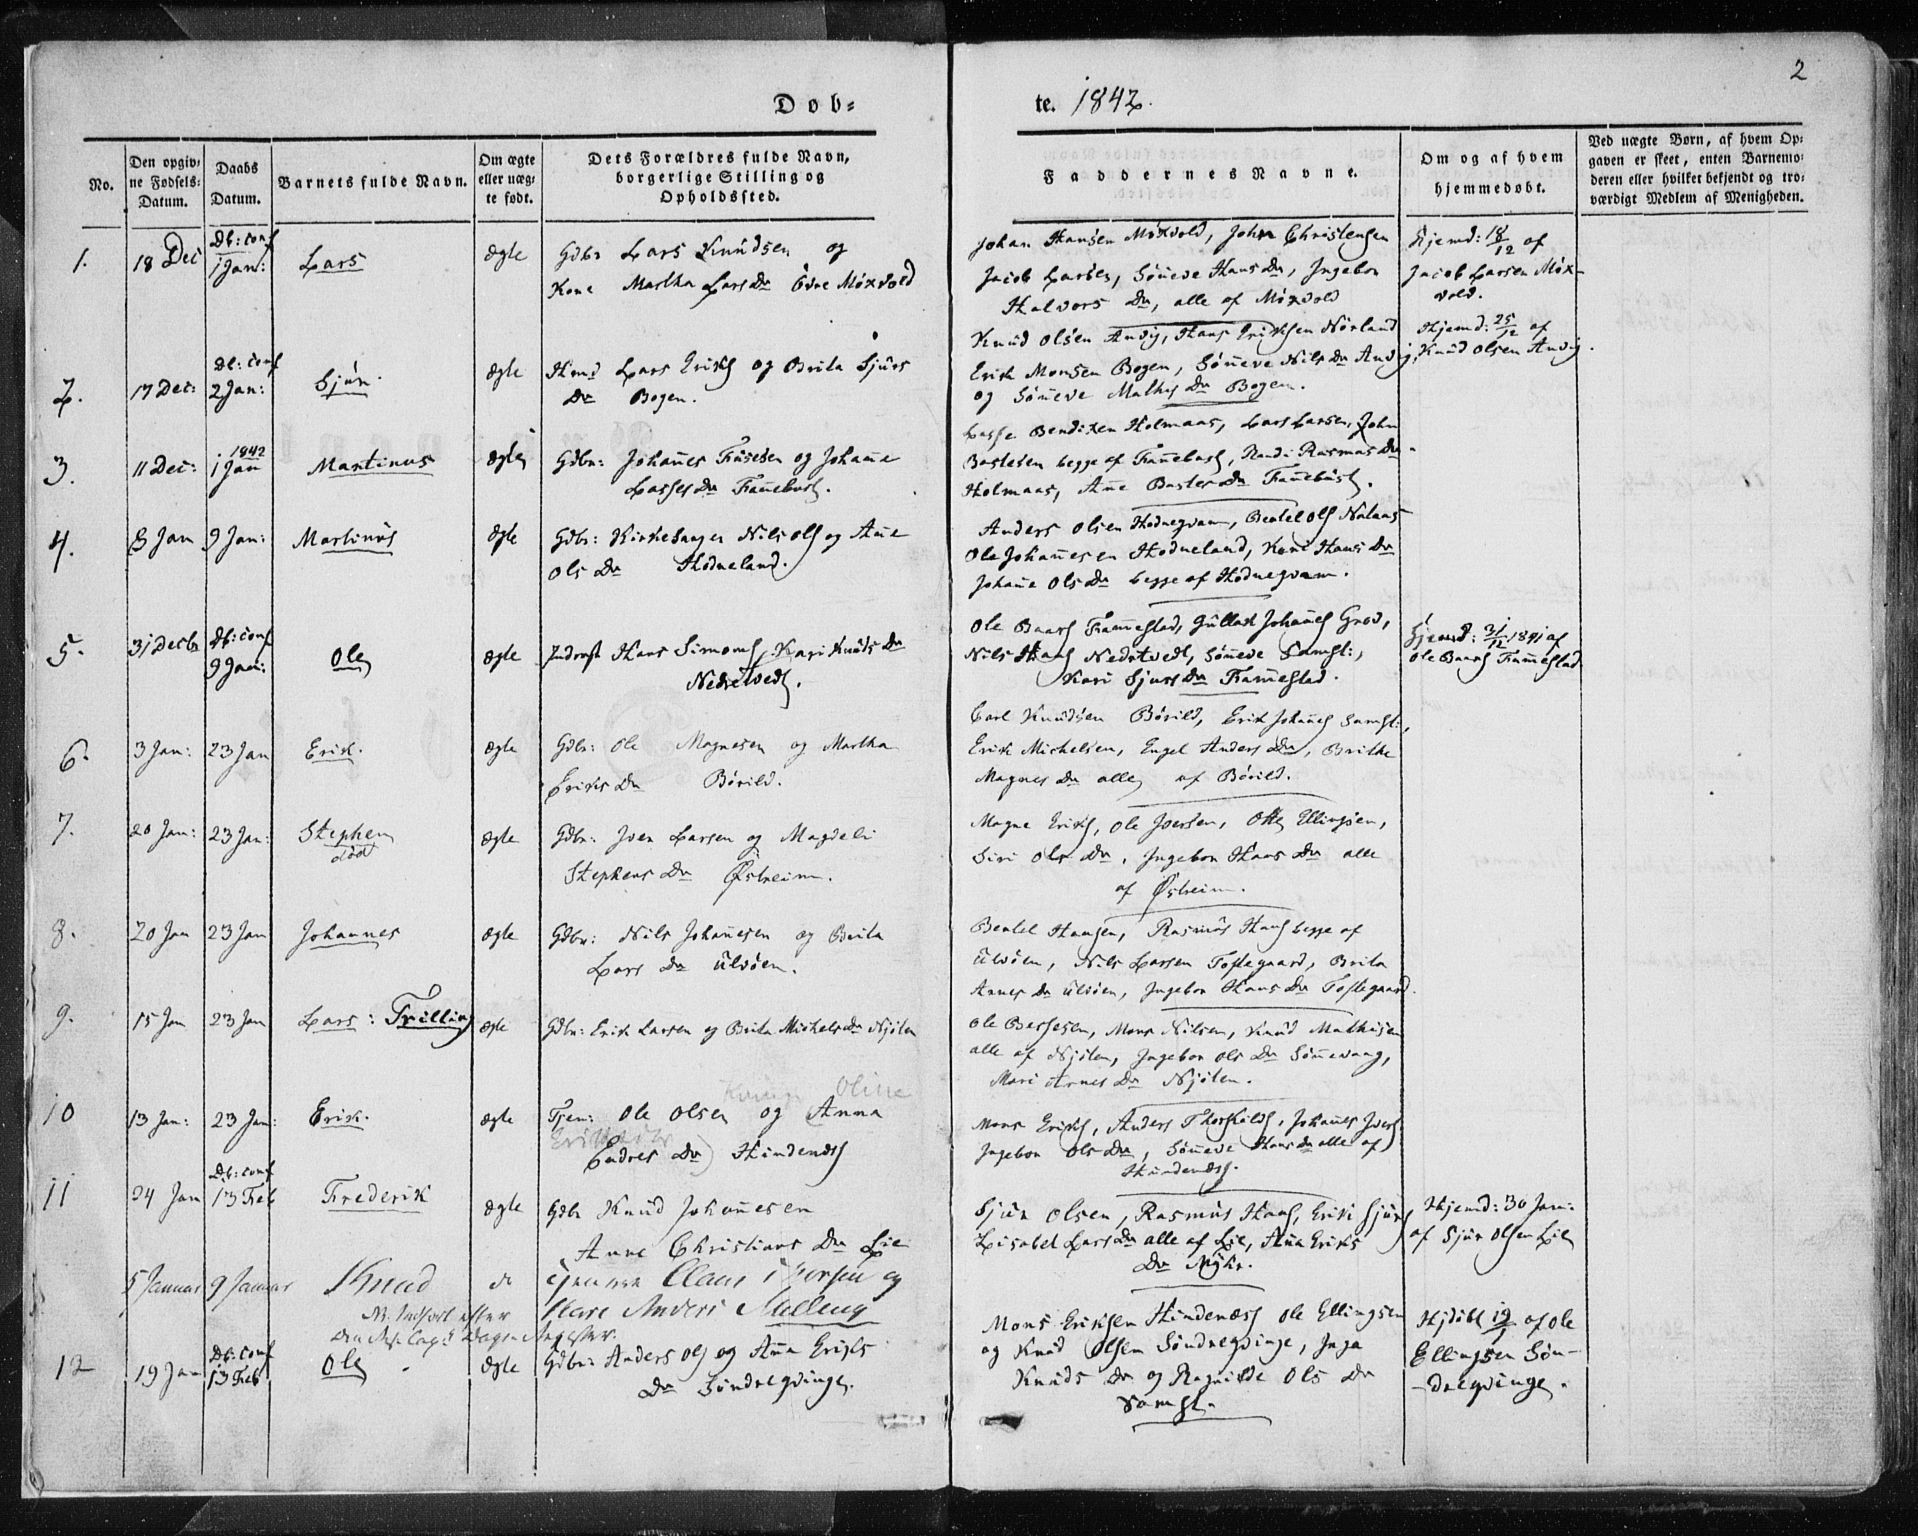 2
Døb=
te. 1842.
No.
Den opgiv=
ne Fødsels=
Datum.
Daabs
Datum.
Barnets fulde Navn.
Om ægte
eller uæg=
te født.
Dets Forældres fulde Navn,
borgerlige Stilling og
Opholdssted.
Faddernes Navne.
Om og af hvem
hjemmedøbt.
Ved uægte Børn, af hvem Op=
gaven er skeet, enten Barnemo=
deren eller hvilket bekjendt og tro=
værdigt Medlem af Menigheden.
1.
18 Dec
Db: conf
1 Jan:
Lars
ægte
Gdbr Lars Knudsen og
Kone Martha Lars Dr Övre Möxvold
Johan Hansen Möxvold, John Christensen
Jacob Larsen, Sönneve Hans Dr, Ingebor
Halvors Dr, alle af Möxvold
Hjemd: 18/12 af
Jacob Larsen Möx-
vold.
2.
17 Dec:
Db: conf
2 Jan:
Sjur.
ægte
Hmd Lars Erichs og Brita Sjurs
Dr Bogen.
Knud Olsen Andvig, Hans Erichsen Nörland
Erik Monsen Bogen, Sönneve Nils Dr Andvig,
og Sönneve Mathis Dr Bogen.
Hjemd: 25/12 af
Knud Olsen Andvig.
3.
11 Dec:
1842
1 Jan
Martinus
ægte
Gdbr: Johannes og Johanne
Lasses Dr
Lasse Bendixen Holmaas, Lars Larsen, John
begge af Randi Rasmus Dr
Holmaas, Anne
4.
8 Jan
9 Jan:
Martinus
ægte
Gdbr: Kirkesanger Nils Ols og Anne
Ols Dr Hodneland.
Anders Olsen Hodnegvam, Bertel Ols
Ole Johannesen Hodneland, Kari Hans Dr
Johanne Ols Dr begge af Hodnegvam.
5.
31 Decbr
Db: conf
9 Jan:
Ole
ægte
Inderst Hans Simons, Kari Knuds Dr
Nedretvedt.
Ole Baars Frammestad, Gullak Johannes
Nils Hans Nedretvedt, Sönneve Samst:,
Kari Sjurs Dr Frammestad.
Hjemd: 31/12 1841 af
Ole Baars Frammestad
6.
3 Jan:
23 Jan
Erik.
ægte
Gdbr: Ole Magnesen og Martha
Eriks Dr Börild.
Carl Knudsen Börild, Erik Johannes Samst:,
Erik Michelsen, Engel Anders Dr, Brithe
Magnes Dr alle af Börild.
7.
20 Jan:
23 Jan:
Stephen
död
ægte
Gdbr: Iver Larsen og Magdeli
Stephens Dr Østreim.
Magne Erichs, Ole Iversen, Otte Ellingsen,
Siri Ols Dr, Ingebor Hans Dr alle
af Østreim.
8.
20 Jan
23 Jan
Johannes
ægte
Gdbr: Nils Johannesen og Brita
Lars Dr Ulvöen.
Bertel Hansen, Rasmus Hans begge af
Ulvöen, Nils Larsen Toftegaard, Brita
Annes Dr Ulvöen, Ingebor Hans Dr Toftegaard.
9.
15 Jan
23 Jan
Lars: Trilling
ægte
Gdbr: Erik Larsen og Brita Michels Dr Njöten
Ole Bersesen, Mons Nilsen, Knud Mathisen
alle af Njöten, Ingebor Ols Dr Sönnevaag,
Mari Arnes Dr Njöten.
10
13 Jan:
23 Jan:
Erik.
ægte
Oline
Tjen: Ole Olsen og Anna
Endres Dr Hindenæs
Mons Erichs, Anders Thorkilds, Johannes Ivers
Ingebor Ols Dr, Sönneve Hans Dr alle af
Hindenæs.
11
24 Jan
Db: conf
13 Feb
Frederik
ægte
Gdbr Knud Johannesen
Anne Christians Dr Lie
Sjur Olsen, Rasmus Hans, Erik Sjurs,
Lisabet Lars Dr alle af Lie, Anna Eriks
Dr
Hjemd: 30 Jan:
af Sjur Olsen Lie
5 Januar
9 Januar
Knud
do
Claus Iversen og
Kari Anders
NB. Indfört efter
Dags Register.
12
19 Jan
Db: conf
13 Feb
Ole
ægte
Gdbr: Anders Ols og Anna Eriks
Dr Söndreqvinge.
Mons Eriksen Hindenæs Ole Ellingsen
og Knud Olsen Söndreqvinge, Inga
Knuds Dr og Ragnilde Ols Dr
Samst.
Hjdöbt 19/1 af Ole
Ellingsen Sön-
-dreqvinge.